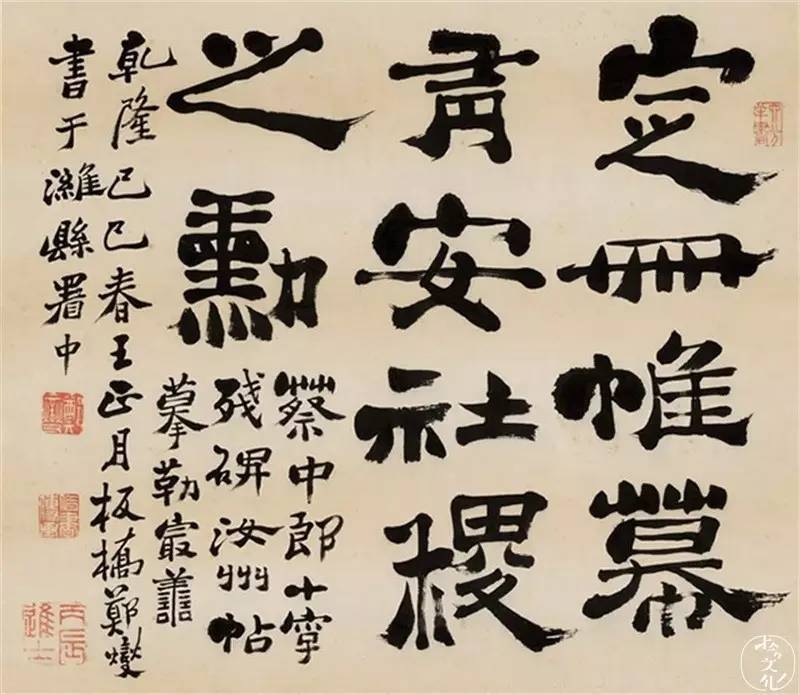 定冊帷幕
有安社稷
之勳
蔡中郎十字
殘碑汝州帖
摹勒冣譱
乾隆己巳春王正月板橋鄭燮
書于濰縣署中
丙辰進士